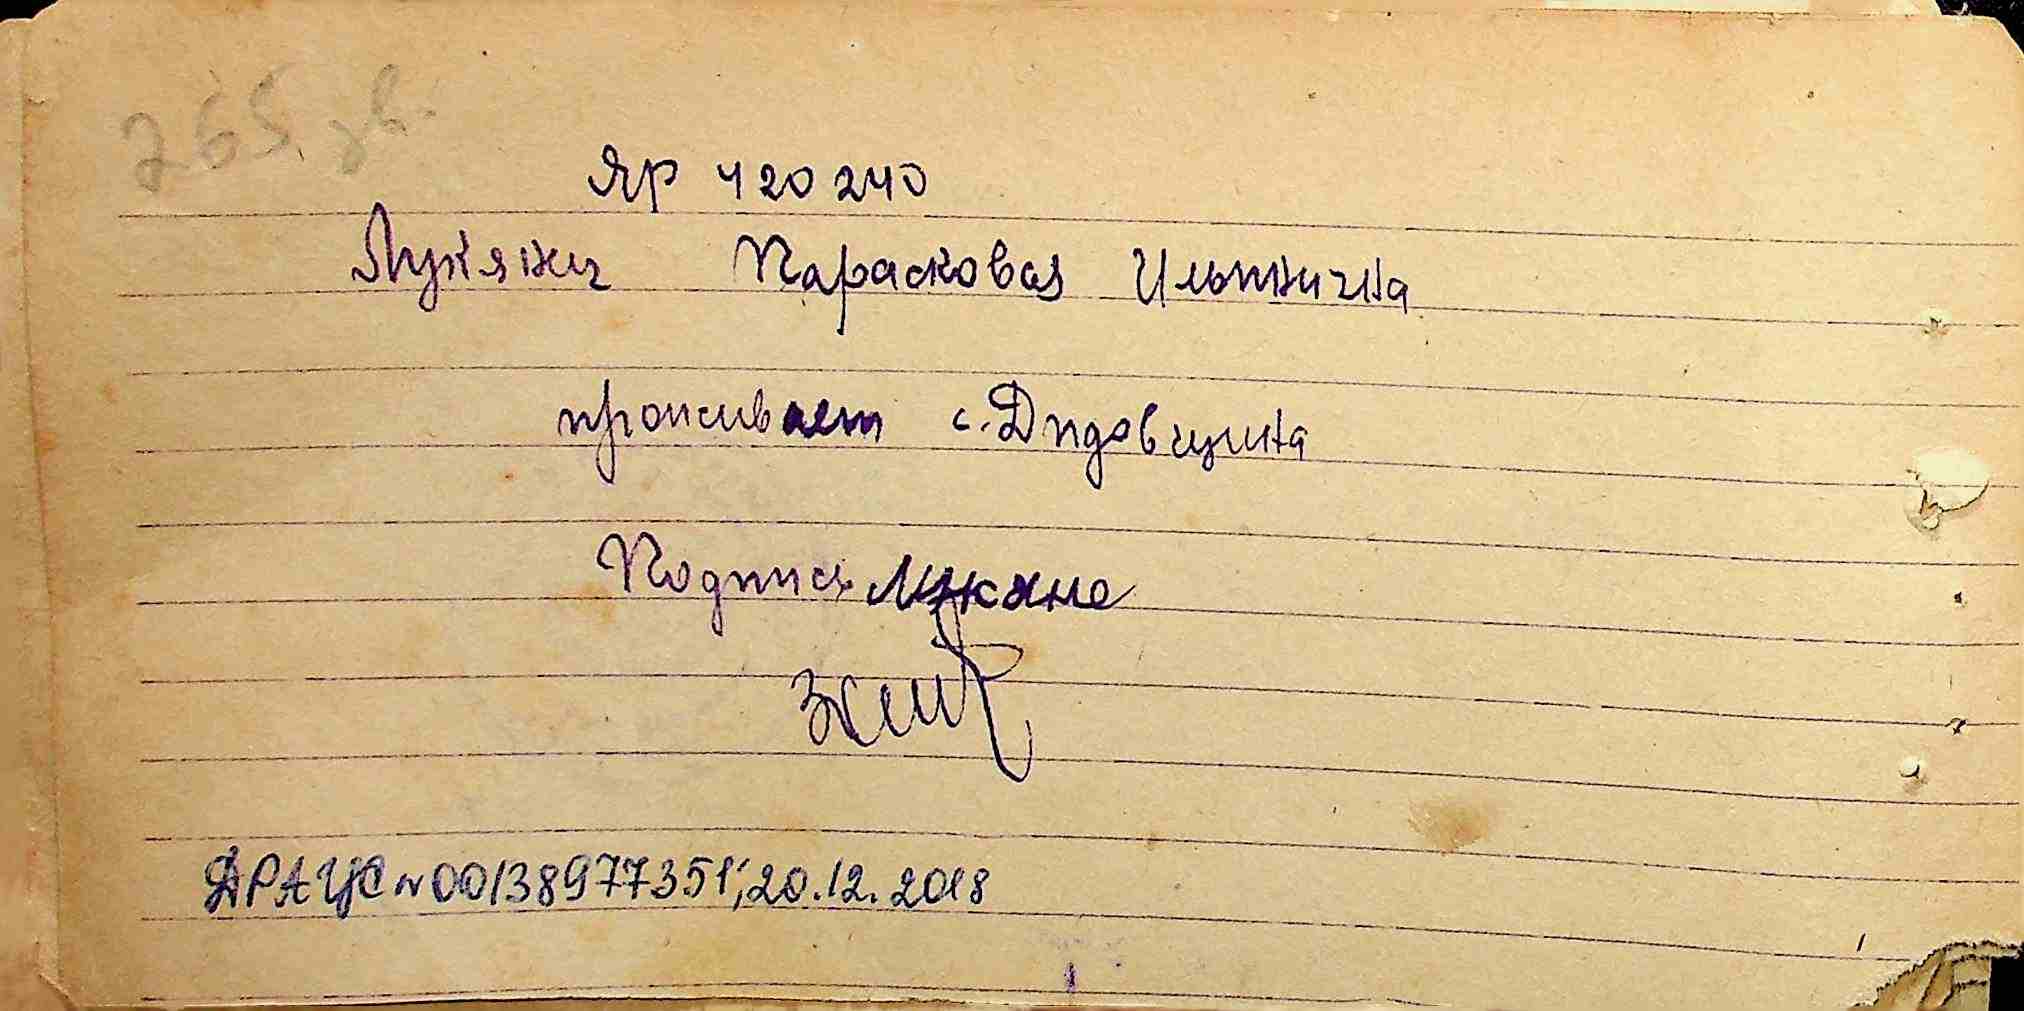 265 зв.
ЯР 420240
Лукянец Парасковья Ильинична
проживает с. Дидовщина
Подпись Лукяне
ДРАЦС №00138977351; 20.12.2018